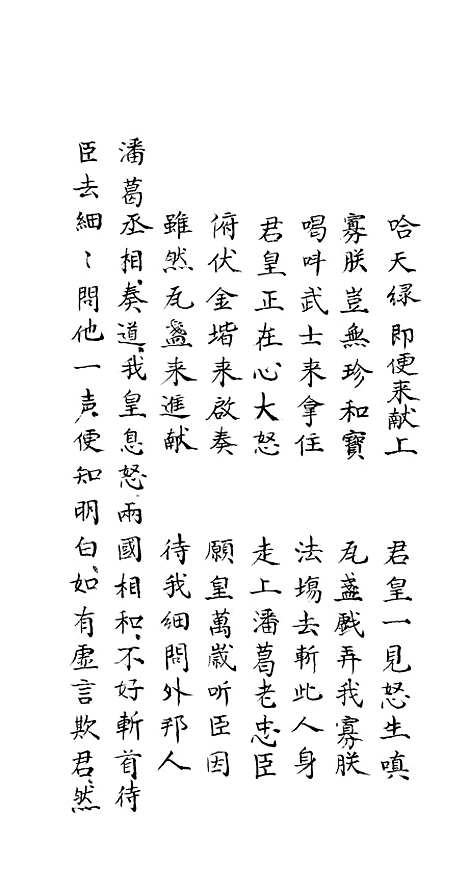 哈天绿即便来献上　君皇一見怒生嗔
寡朕豈無珍和寶　瓦盞戲弄我寡朕
唱呌武士来拿住　法塲去斬此人身
君皇正在心大怒　走上潘葛老忠臣
俯伏金堦来啟奏　願皇萬歲听臣因
雖然瓦盞来進献　待我細問外邦人
潘葛丞相奏道、我皇息怒、兩國相和、不好斬首、待
臣去細〻問他一声、便知明白、如有虛言欺君、然